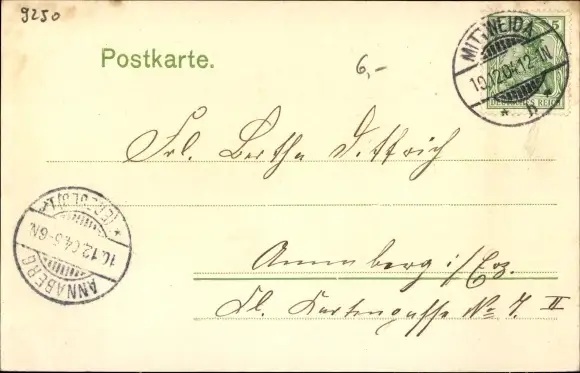 9250
Postkarte.
6,-
MITTWEIDA
10.12.04.12-1N.
5
DEUTSCHES REICH
Frl. Bertha Dittrich
ANNABERG
10.12.04.5-6N.
(ERZGEB.)
Annaberg i/Erz.
Kl. Kartengasse No 7. II